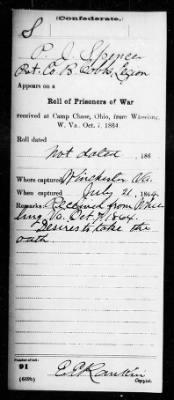 (Confederate.)
S
P. J. Spencer
Pvt. Co. B Cobb Legion
Appears on a
Roll of Prisoners of War
received at Camp Chase, Ohio, from Wheeling,
W. Va. Oct. 1, 1864
Roll dated
Not dated, 186
Where captured Winchester Va.
When captured July 21, 1864
Remarks: Received from Whee
ling Va. Oct. 1, 1864.
Desires to take the
oath
Number of roll:
91
(639b)
E. E. Rankin
Copyist.